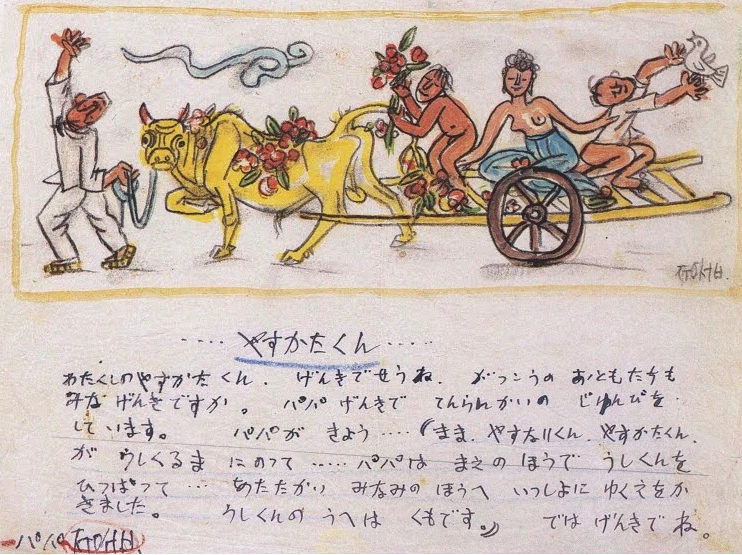 ㅈㅜㅇㅅㅓㅂ.
‥‥ やすかたくん ‥‥
わたくしの やすかた くん . げんきでせうね . がつこうの おともたちも
みな げんきですか 。 パパ げんきで てんらんかいの じゆんびを .
しています。 パパが きよう ‥‥ (まま. やすなりくん. やすかたくん.
が うしくるま にのって ‥‥‥ パパは まえの ほうで うしくんを
ひつぱって … あたたかい みなみの ほうへ いつしよに ゆくえをか
きました。 うしくんの うへは くもです。) では げんきで ね。
パパ ㅈㅜㅇㅅㅓㅂ.